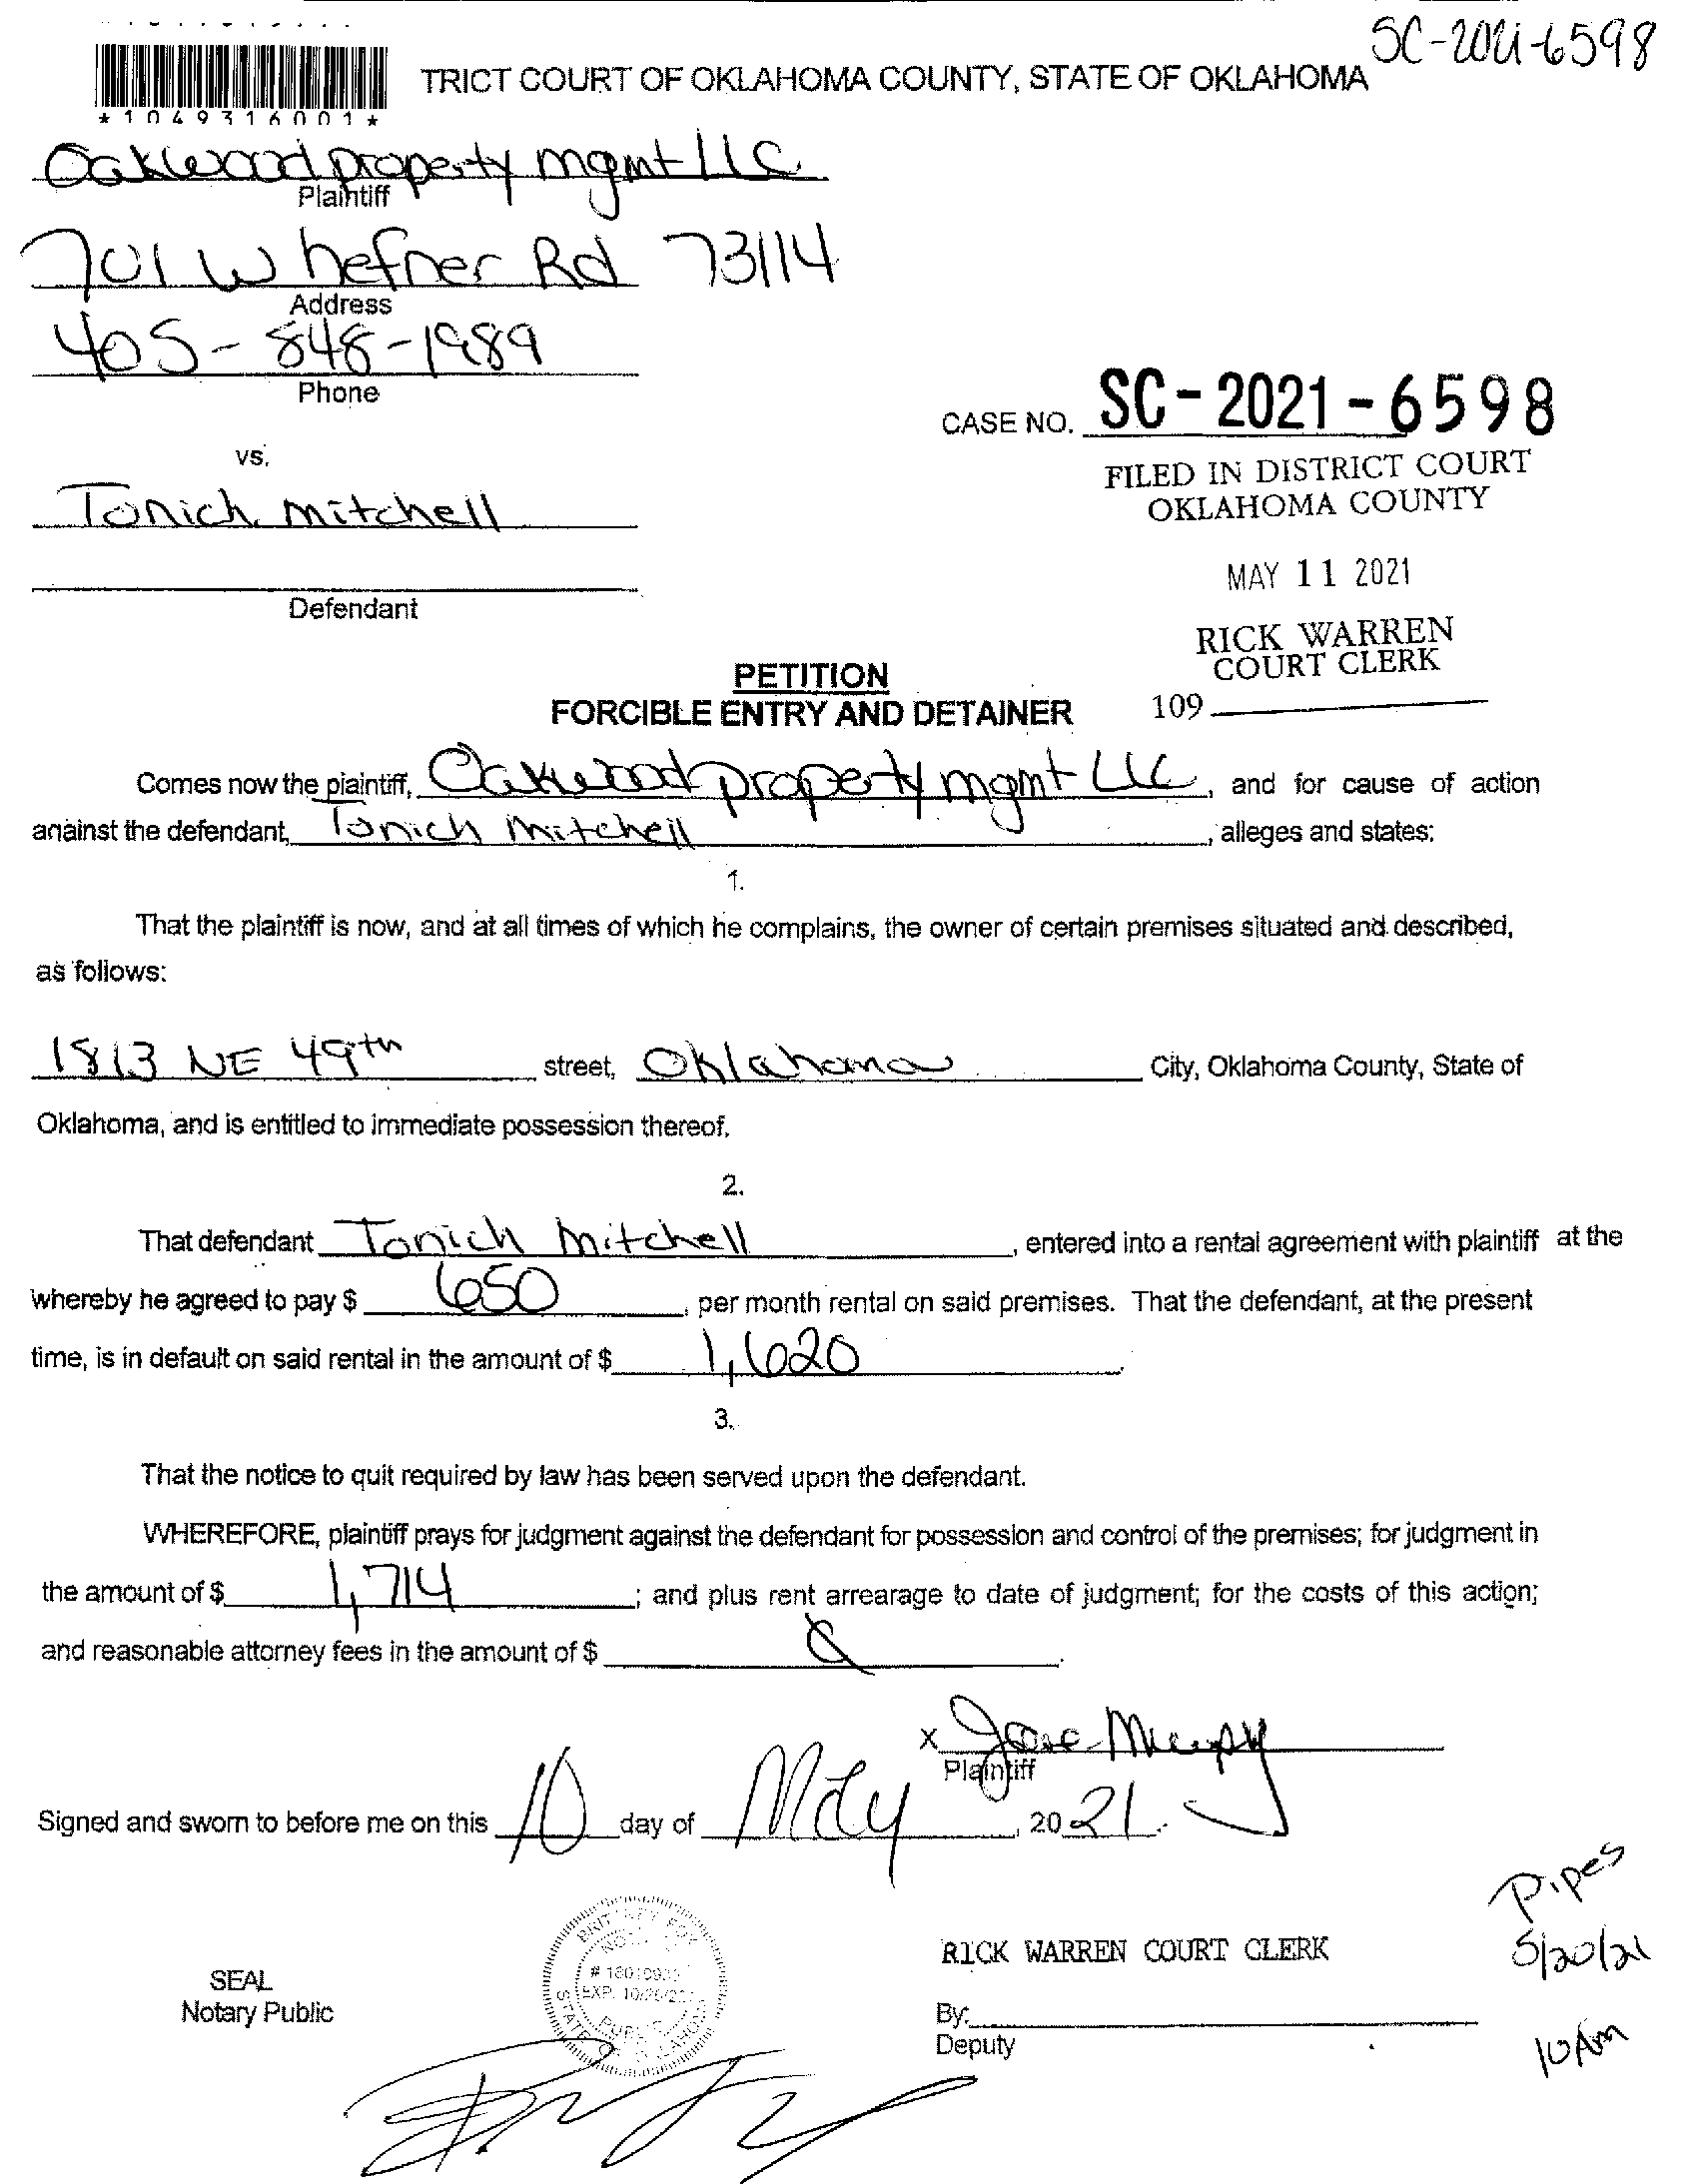 SC-2021-6598
TRICT COURT OF OKLAHOMA COUNTY, STATE OF OKLAHOMA
*1049316001*
Oakwood property mgmt LLC
Plaintiff
701 W hefner Rd 73114
Address
405-848-1989
Phone
CASE NO. SC-2021-6598
vs.
FILED IN DISTRICT COURT
OKLAHOMA COUNTY
Tonich mitchell
MAY 11 2021
Defendant
RICK WARREN
COURT CLERK
109
PETITION
FORCIBLE ENTRY AND DETAINER
Comes now the plaintiff, Oakwood property mgmt LLC, and for cause of action
against the defendant, Tonich Mitchell, alleges and states:
1.
That the plaintiff is now, and at all times of which he complains, the owner of certain premises situated and described,
as follows:
1813 NE 49th street, Oklahoma City, Oklahoma County, State of
Oklahoma, and is entitled to immediate possession thereof.
2.
That defendant Tonich Mitchell, entered into a rental agreement with plaintiff at the
whereby he agreed to pay $ 650, per month rental on said premises. That the defendant, at the present
time, is in default on said rental in the amount of $ 1,620.
3.
That the notice to quit required by law has been served upon the defendant.
WHEREFORE, plaintiff prays for judgment against the defendant for possession and control of the premises; for judgment in
the amount of $ 1,714; and plus rent arrearage to date of judgment; for the costs of this action;
and reasonable attorney fees in the amount of $.
X
Plaintiff
Signed and sworn to before me on this 10 day of May, 2021.
Pipes
5/20/21
10 Am
RICK WARREN COURT CLERK
SEAL
Notary Public
By:
Deputy